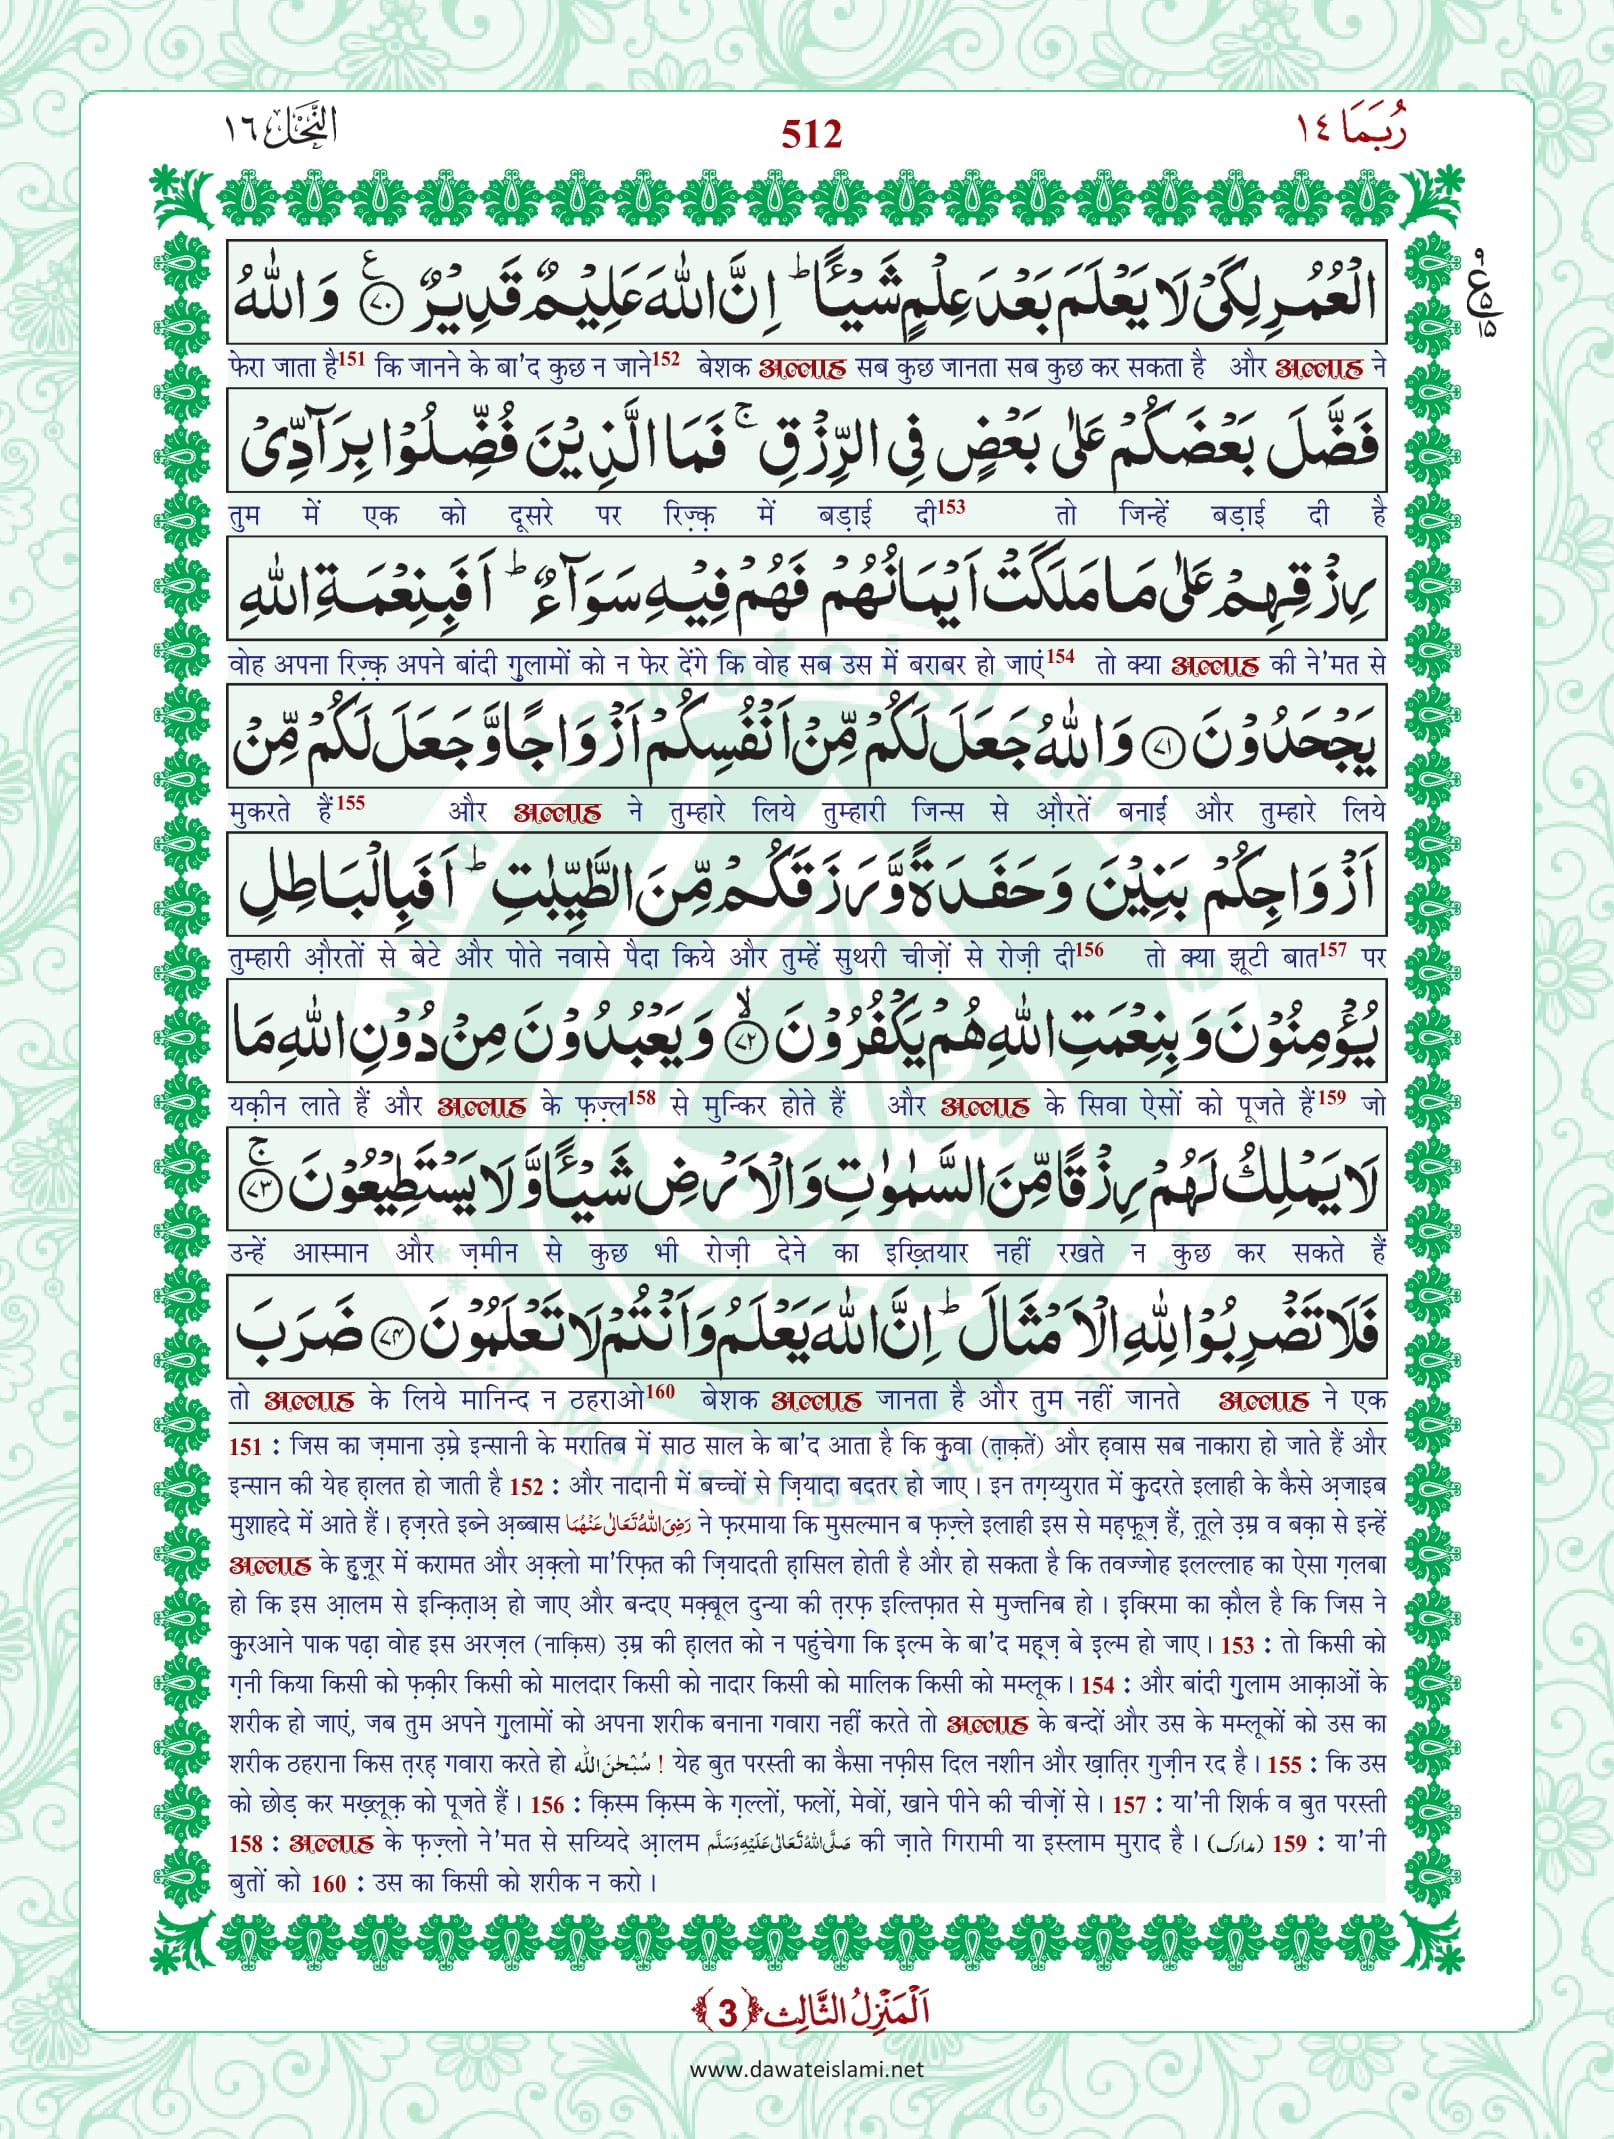 النَّحْل ١٦
512
رُبَمَا ١٤
الْعُمُرِ لِكَیْ لَا یَعْلَمَ بَعْدَ عِلْمٍ شَیْــٴًـاؕ اِنَّ اللّٰهَ عَلِیْمٌ قَدِیْرٌ۠ ﴿۷۰﴾ وَ اللّٰهُ
फेरा जाता है151 कि जानने के बा'द कुछ न जाने152 बेशक अल्लाह सब कुछ जानता सब कुछ कर सकता है और अल्लाह ने
فَضَّلَ بَعْضَكُمْ عَلٰى بَعْضٍ فِی الرِّزْقِۚ فَمَا الَّذِیْنَ فُضِّلُوْا بِرَآدِّیْ
तुम में एक को दूसरे पर रिज़्क़ में बड़ाई दी153 तो जिन्हें बड़ाई दी है
رِزْقِهِمْ عَلٰى مَا مَلَكَتْ اَیْمَانُهُمْ فَهُمْ فِیْهِ سَوَآءٌؕ اَفَبِنِعْمَةِ اللّٰهِ
वोह अपना रिज़्क़ अपने बांदी ग़ुलामों को न फेर देंगे कि वोह सब उस में बराबर हो जाएं154 तो क्या अल्लाह की ने'मत से
یَجْحَدُوْنَ ﴿۷۱﴾ وَ اللّٰهُ جَعَلَ لَكُمْ مِّنْ اَنْفُسِكُمْ اَزْوَاجًا وَّ جَعَلَ لَكُمْ مِّنْ
मुकरते हैं155 और अल्लाह ने तुम्हारे लिये तुम्हारी जिन्स से औ़रतें बनाईं और तुम्हारे लिये
اَزْوَاجِكُمْ بَنِیْنَ وَ حَفَدَةً وَّ رَزَقَكُمْ مِّنَ الطَّیِّبٰتِؕ اَفَبِالْبَاطِلِ
तुम्हारी औ़रतों से बेटे और पोते नवासे पैदा किये और तुम्हें सुथरी चीज़ों से रोज़ी दी156 तो क्या झूटी बात157 पर
یُؤْمِنُوْنَ وَ بِنِعْمَتِ اللّٰهِ هُمْ یَكْفُرُوْنَۙ ﴿۷۲﴾ وَ یَعْبُدُوْنَ مِنْ دُوْنِ اللّٰهِ مَا
यक़ीन लाते हैं और अल्लाह के फ़ज़्ल158 से मुन्किर होते हैं और अल्लाह के सिवा ऐसों को पूजते हैं159 जो
لَا یَمْلِكُ لَهُمْ رِزْقًا مِّنَ السَّمٰوٰتِ وَ الْاَرْضِ شَیْــٴًـا وَّ لَا یَسْتَطِیْعُوْنَۚ ﴿۷۳﴾
उन्हें आस्मान और ज़मीन से कुछ भी रोज़ी देने का इख़्तियार नहीं रखते न कुछ कर सकते हैं
فَلَا تَضْرِبُوْا لِلّٰهِ الْاَمْثَالَؕ اِنَّ اللّٰهَ یَعْلَمُ وَ اَنْتُمْ لَا تَعْلَمُوْنَ ﴿۷۴﴾ ضَرَبَ
तो अल्लाह के लिये मानिन्द न ठहराओ160 बेशक अल्लाह जानता है और तुम नहीं जानते अल्लाह ने एक
151 : जिस का ज़माना उ़म्रे इन्सानी के मरातिब में साठ साल के बा'द आता है कि क़ुवा (त़ाक़तें) और ह़वास सब नाकारा हो जाते हैं और
इन्सान की येह ह़ालत हो जाती है 152 : और नादानी में बच्चों से ज़ियादा बदतर हो जाए। इन तग़य्युरात में क़ुदरते इलाही के कैसे अ़जाइब
मुशाहदे में आते हैं। ह़ज़रते इब्ने अ़ब्बास رَضِیَ اللّٰهُ تَعَالٰى عَنْهُمَا ने फ़रमाया कि मुसल्मान ब फ़ज़्ले इलाही इस से मह़फ़ूज़ हैं, त़ूले उ़म्र व बक़ा से इन्हें
अल्लाह के हुज़ूर में करामत और अ़क़्लो मा'रिफ़त की ज़ियादती ह़ासिल होती है और हो सकता है कि तवज्जोह इलल्लाह का ऐसा ग़लबा
हो कि इस आ़लम से इन्क़ित़ाअ़ हो जाए और बन्दए मक़्बूल दुन्या की त़रफ़ इल्तिफ़ात से मुज्तनिब हो। इ़क्रिमा का क़ौल है कि जिस ने
क़ुरआने पाक पढ़ा वोह इस अरज़ल (नाक़िस) उ़म्र की ह़ालत को न पहुंचेगा कि इ़ल्म के बा'द मह़्ज़ बे इ़ल्म हो जाए। 153 : तो किसी को
ग़नी किया किसी को फ़क़ीर किसी को मालदार किसी को नादार किसी को मालिक किसी को मम्लूक। 154 : और बांदी ग़ुलाम आक़ाओं के
शरीक हो जाएं, जब तुम अपने ग़ुलामों को अपना शरीक बनाना गवारा नहीं करते तो अल्लाह के बन्दों और उस के मम्लूकों को उस का
शरीक ठहराना किस त़रह़ गवारा करते हो سُبْحٰنَ اللّٰه ! येह बुत परस्ती का कैसा नफ़ीस दिल नशीन और ख़ात़िर गुज़ीन रद है। 155 : कि उस
को छोड़ कर मख़्लूक़ को पूजते हैं। 156 : क़िस्म क़िस्म के ग़ल्लों, फलों, मेवों, खाने पीने की चीज़ों से। 157 : या'नी शिर्क व बुत परस्ती
158 : अल्लाह के फ़ज़्लो ने'मत से सय्यिदे आ़लम صَلَّى اللّٰهُ تَعَالٰى عَلَیْهِ وَسَلَّم की ज़ाते गिरामी या इस्लाम मुराद है। (مدارک) 159 : या'नी
बुतों को 160 : उस का किसी को शरीक न करो।
اَلْمَنْزِلُ الثَّالِث ﴿3﴾
www.dawateislami.net